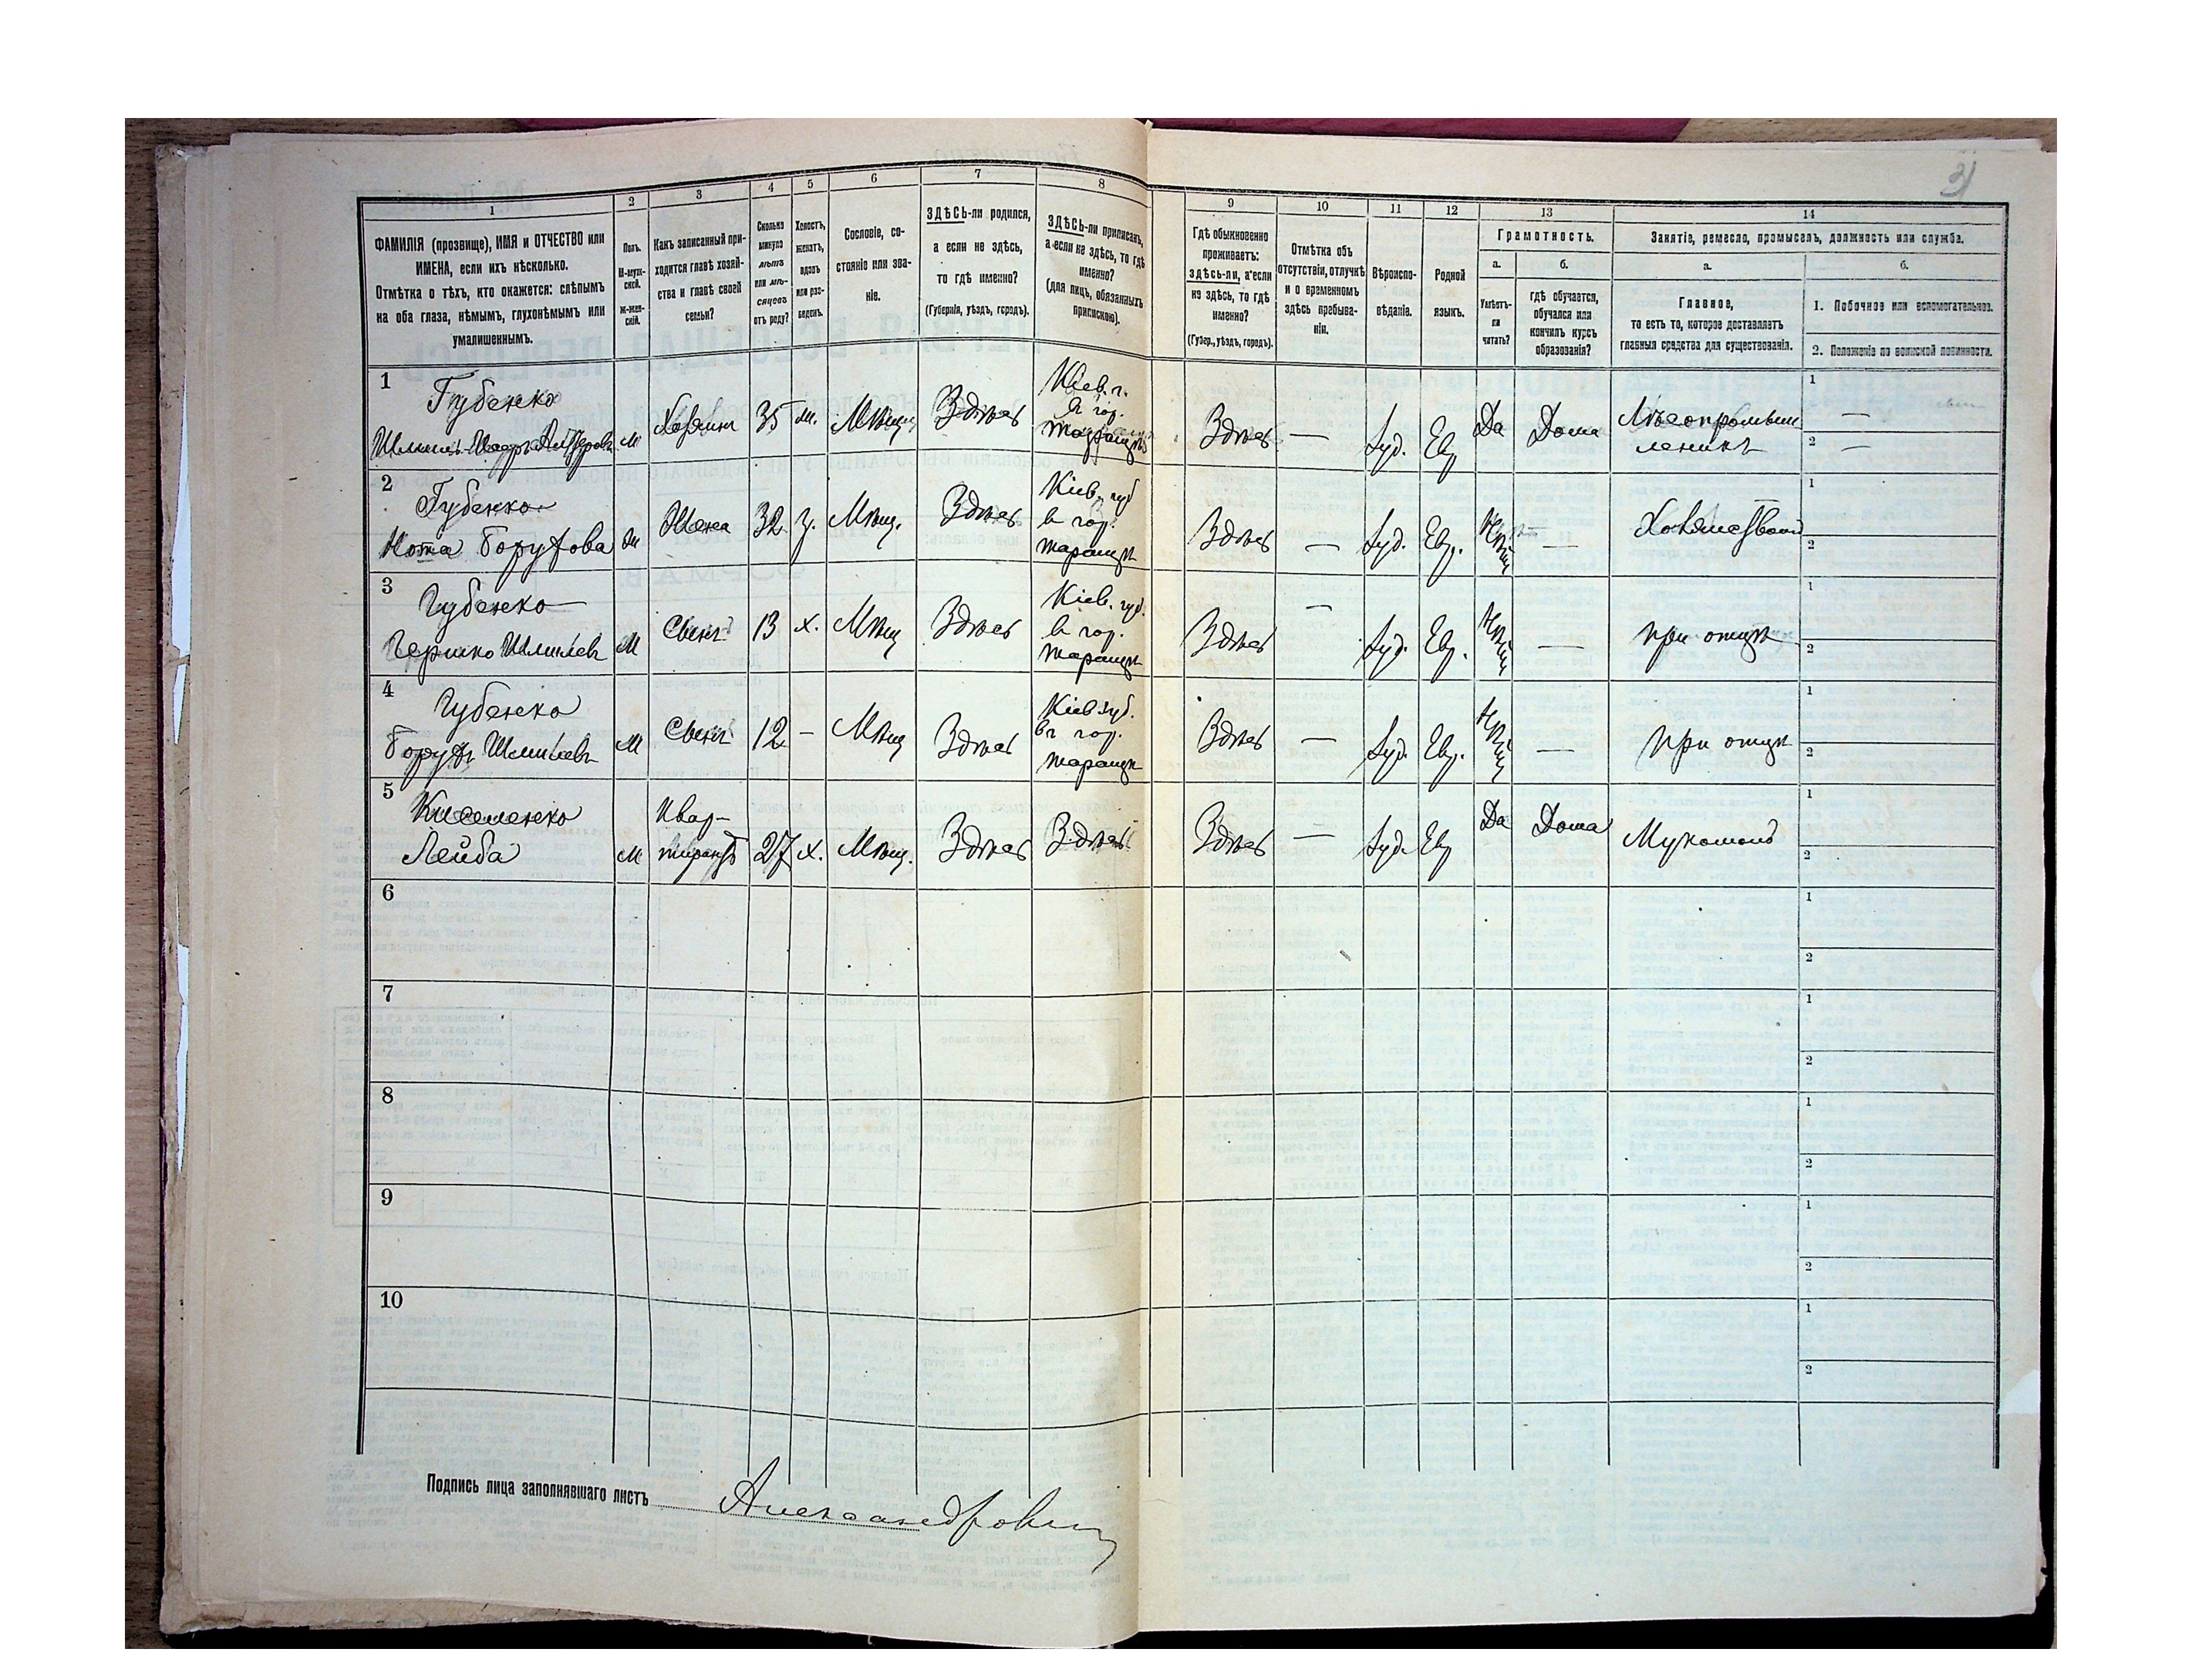 3)
1
2
3
4
5
6
7
8
9
10
11
12
13
14
ФАМИЛІЯ (прозвище), ИМЯ и ОТЧЕСТВО или
ИМЕНА, если ихъ нѣсколько.
Отмѣтка о тѣхъ, кто окажется: слѣпымъ
на оба глаза, нѣмымъ, глухонѣмымъ или
умалишеннымъ.
Полъ.
М-муж-
ской.
Ж-жен-
скій.
Какъ записанный при-
ходится главѣ хозяй-
ства и главѣ своей
семьи?
Сколько
минуло
лѣтъ
или мѣ-
сяцевъ
отъ роду?
Холостъ,
женатъ,
вдовъ
или раз-
веденъ.
Сословіе, со-
стояніе или зва-
ніе.
ЗДѢСЬ-ли родился,
а если не здѣсь,
то гдѣ именно?
(Губернія, уѣздъ, городъ).
ЗДѢСЬ-ли приписанъ,
а если не здѣсь, то гдѣ
именно?
(для лицъ, обязанныхъ
припискою).
Гдѣ обыкновенно
проживаетъ:
здѣсь-ли, а если
не здѣсь, то гдѣ
именно?
(Губер., уѣздъ, городъ).
Отмѣтка объ
отсутствіи, отлучкѣ
и о временномъ
здѣсь пребыва-
ніи.
Вѣроиспо-
вѣданіе.
Родной
языкъ.
Грамотность.
а.
б.
Умѣетъ-
ли
читать?
гдѣ обучается,
обучался или
кончилъ курсъ
образованія?
Занятіе, ремесло, промыселъ, должность или служба.
а.
б.
Главное,
то есть то, которое доставляетъ
главныя средства для существованія.
1. Побочное или вспомогательное.
2. Положеніе по воинской повинности.
1
Губенко
М
Хозяинъ
35
ж.
Мѣщ.
Здѣсь
Кіев. г.
в гор.
таращѣ
Здѣсь
—
Іуд.
Евр
Да
Дома
Лѣсопромыш
ленникъ
1
—
2
—
2
Губенко
Боруфова
Жена
32
з.
Мѣщ.
Здѣсь
Кіев. губ
в гор.
таращѣ
Здѣсь
—
Іуд.
Евр.
Нѣтъ
—
1
2
3
Губенко
Гершко Шмилев
М
Сынъ
13
х.
Мѣщ
Здѣсь
Кіев. губ.
в гор.
таращѣ
Здѣсь
—
Іуд.
Евр.
Нѣтъ
—
при отцѣ
1
2
4
Губенко
Боруфъ Шмилевъ
М
Сынъ
12
—
Мѣщ
Здѣсь
Кіев губ.
въ гор.
таращѣ
Здѣсь
—
Іуд.
Евр.
Нѣтъ
—
при отцѣ
1
2
5
Киселенко
Лейба
М
Квар-
тирантъ
27
х.
Мѣщ.
Здѣсь
Здѣсь
Здѣсь
—
Іуд.
Евр
Да
Дома
Мукомолъ
1
2
6
1
2
7
1
2
8
1
2
9
1
2
10
1
2
Подпись лица заполнявшаго листъ